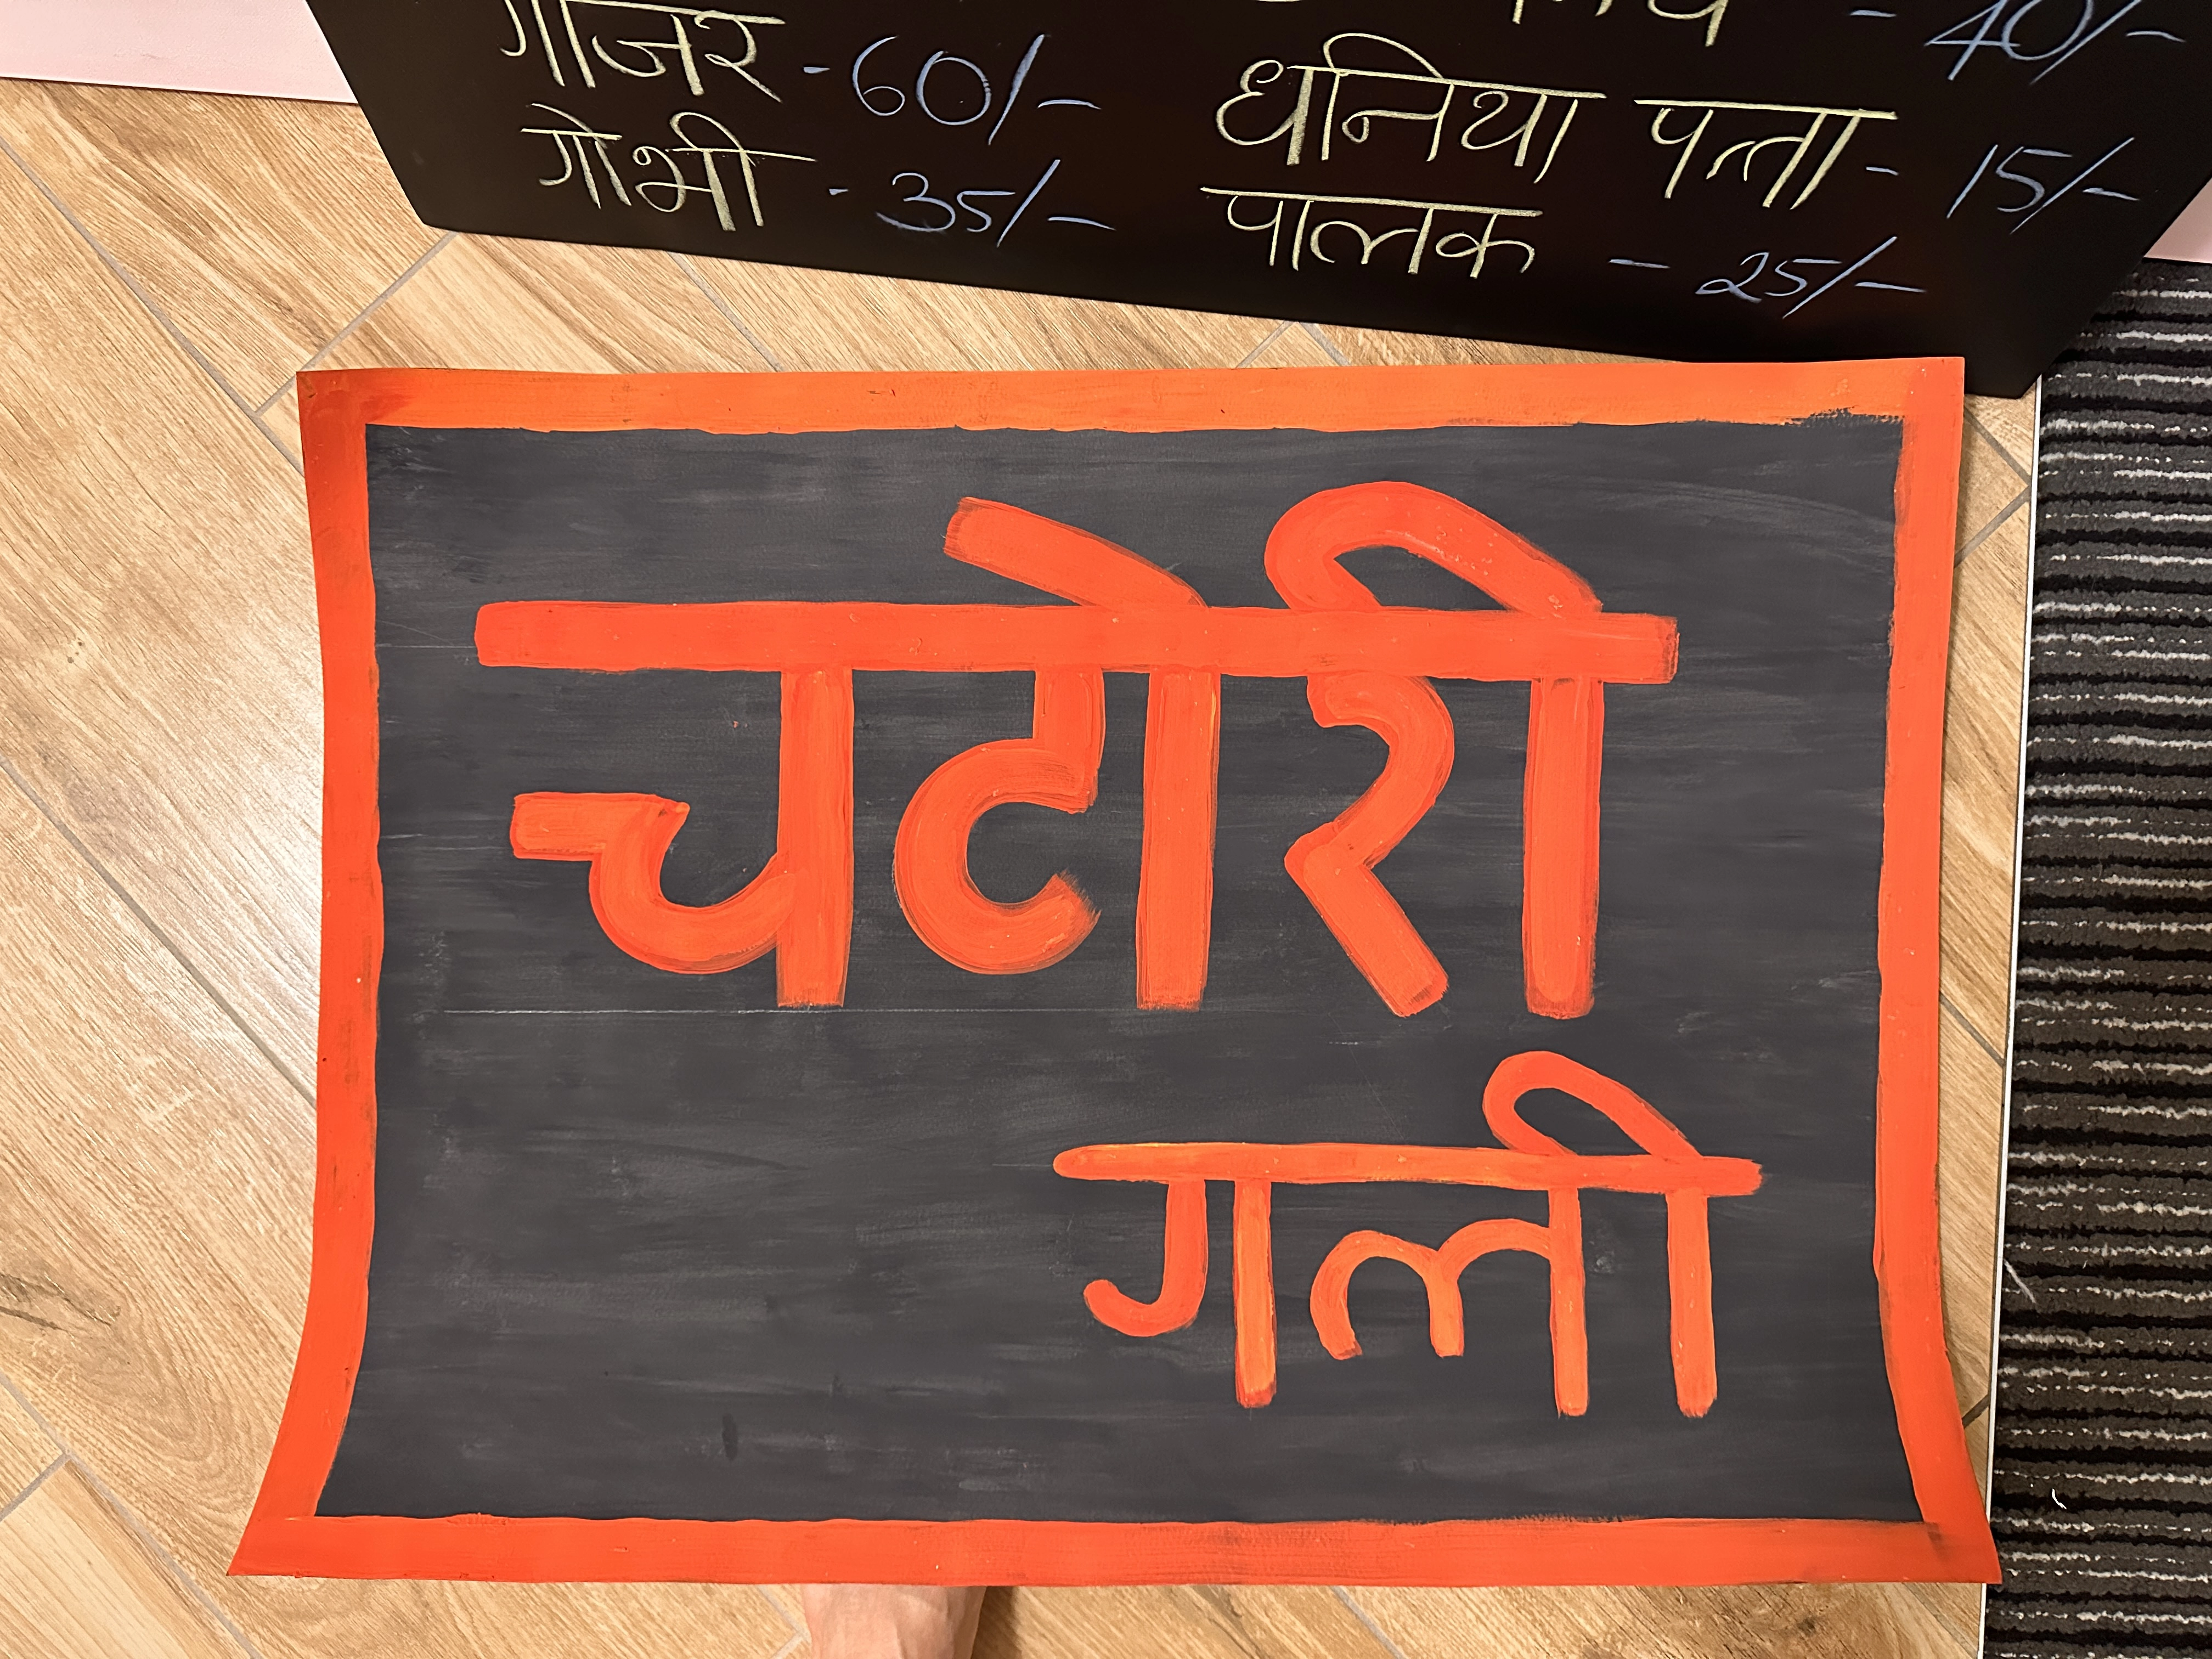 गाजर - 60/-
गोभी - 35/-
- 40/-
धनिया पत्ता - 15/-
पालक - 25/-
चटोरी
गली